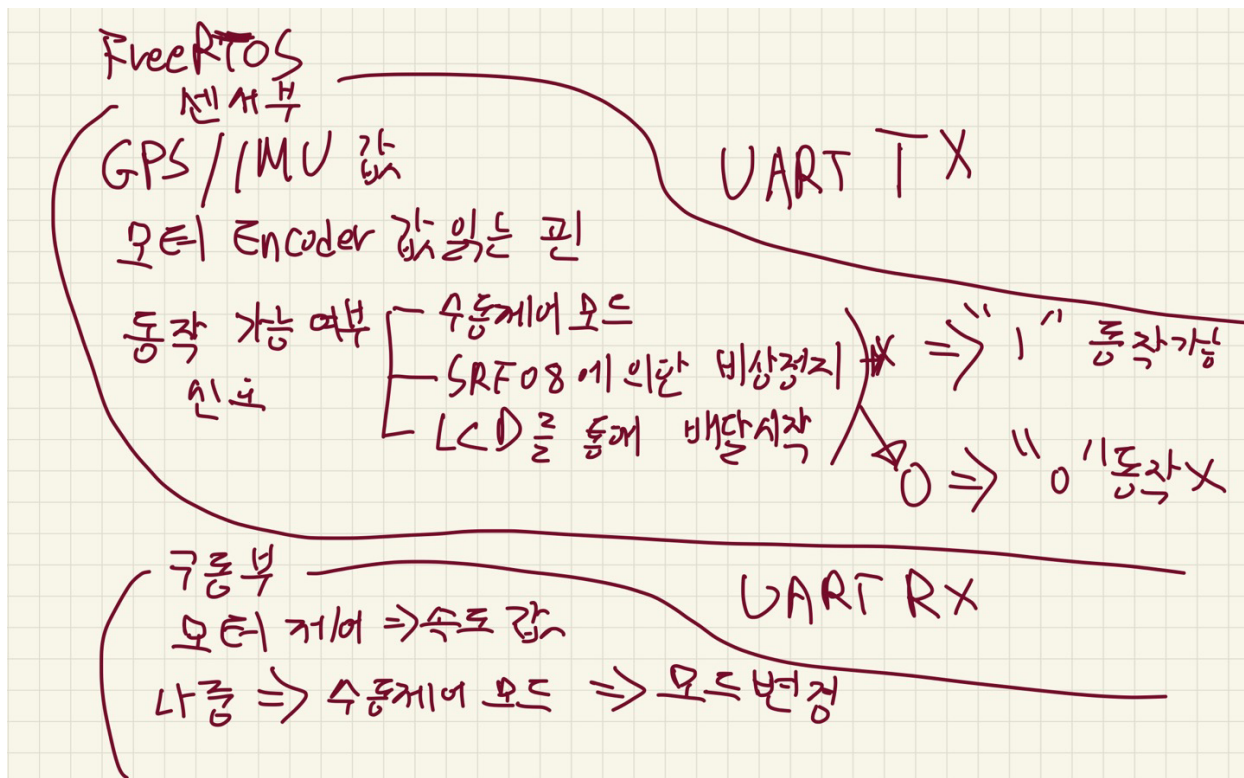 FreeRTOS
센서부
GPS/IMU 값
UART TX
모터 Encoder 값 읽는 핀
동작 가능 여부
수동제어 모드
SRF08에 의한 비상정지
LCD를 통해 배달시작
X => "1" 동작가능
O => "0" 동작X
구동부
UART RX
모터 제어 => 속도 값
=> 수동제어 모드 => 모드변경